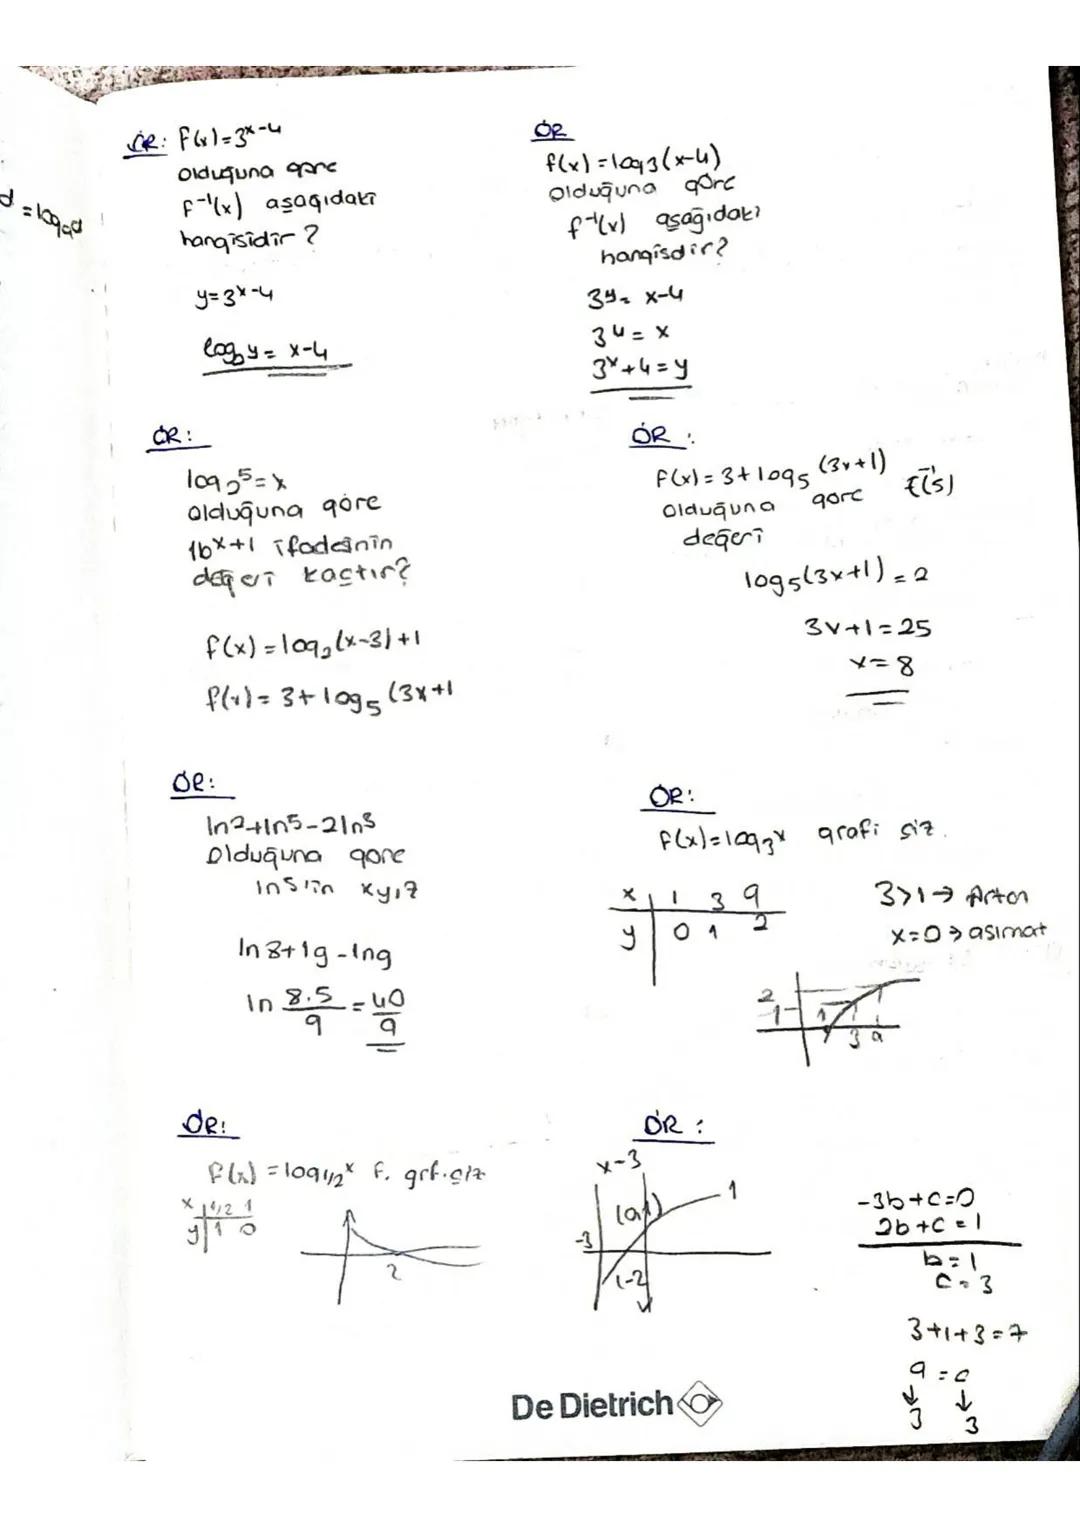 ÖR: f(x)=3^x-4
olduğuna göre
f^-1(x) aşağıdaki
hangisidir ?
y=3^x-4
log_3 y = x-4
ÖR
f(x)=log_3(x-4)
olduğuna göre
f^-1(x) aşağıdaki
hangisdir?
3^y = x-4
3^4 = x
3^x+4=y
ÖR:
log_2 5=x
olduğuna göre
16^x+1 ifadesinin
değeri kaçtır?
f(x)=log_2(x-3)+1
f(x)=3+log_5(3x+1
ÖR:
f(x)=3+log_5(3x+1)
olduğuna göre f^-1(5)
değeri
log_5(3x+1)=2
3x+1=25
x=8
ÖR:
olduğuna göre
ÖR:
f(x)=log_3 x grafi çiz.
x 1 3 9
y 0 1 2
3>1→ Artan
x=0→asimat
2
1
1 3 9
ln 8.5/9 = 40/9
ÖR:
f(x)=log_1/2 x f. grf.çiz
x 1/2 1
y 1 0
2
ÖR:
x-3
1
-3
(-2
-3b+c=0
2b+c=1
b=1
c=3
3+1+3=7
3 3
De Dietrich